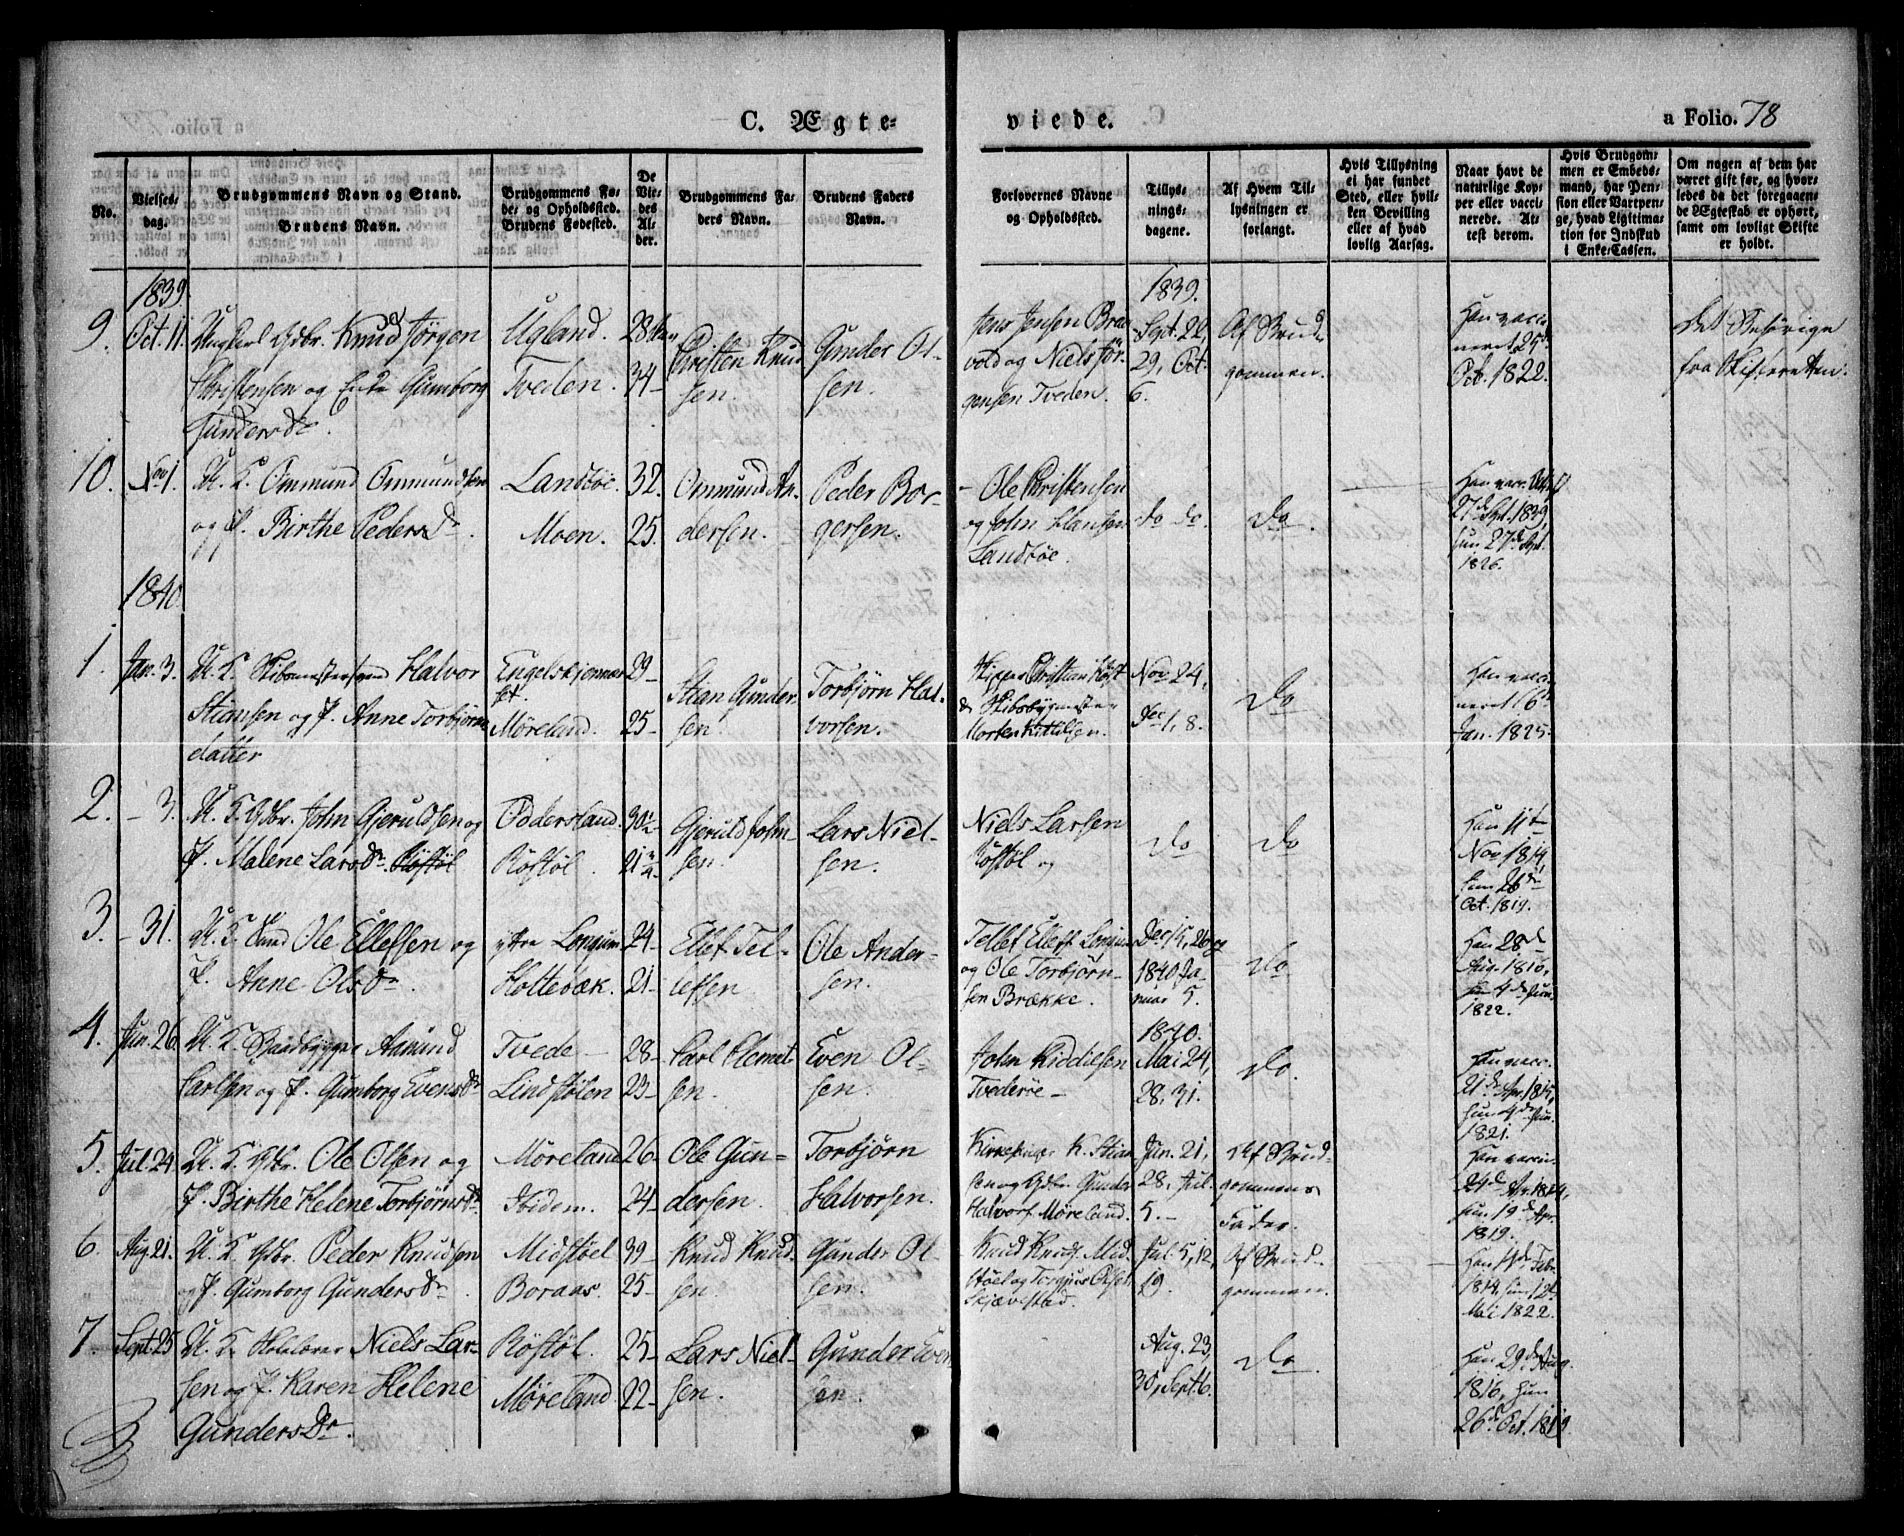 C. Ægte-
viede.
a Folio. 78
No.
Vielses-
dag.
Brudgommens Navn og Stand.
Brudens Navn.
Brudgommens Fø-
de- og Opholdssted.
Brudens Fødested.
De
Vie-
des
Al-
der.
Brudgommens Fa-
ders Navn.
Brudens Faders
Navn.
Forlovernes Navne
og Opholdsted.
Tillys-
nings-
dagene.
Af Hvem Til-
lysningen er
forlangt.
Hvis Tillysning
ei har fundet
Sted, eller hvil-
ken Bevilling
eller af hvad
lovlig Aarsag.
Naar havt de
naturlige Kop-
per eller vacci-
nerede. At-
test derom.
Hvis Brudgom-
men er Embeds-
mand, har Pen-
sion eller Vartpen-
ge, hvad Legitima-
tion for Indskud
i Enke-Cassen.
Om nogen af dem har
været gift før, og hvor-
ledes da det foregaaen-
de Ægteskab er ophørt,
samt om lovligt Skifte
er holdt.
1839.
9. Oct. 11. Ungkarl Gdbr. Knud Jörgen
Christensen og Enke Gumborg
Gundersdr.
Ugland.
Tveden.
28
34
Christen Knud-
sen.
Gunder Ol-
sen.
Jens Jensen Bra-
vold og Niels Jör-
gensen Tveden.
1839.
Sept. 22,
29, Oct.
6.
Af Brud-
gommen.
Han vacci-
neret 25de
Oct. 1822.
Det Behörige
fra Skifteretten.
10. Nov 1. U. K. Ommund Ommundsen
og P. Birthe Pedersdr.
Landböe.
Moen.
32.
25.
Ommund An-
dersen.
Peder Bor-
gersen.
Ole Christensen
og John Hansen
Landböe.
do do.
do.
Han vacc.
27de Spt. 1839,
hun 27de Spt.
1826.
1840.
1. Jan. 3. U. K. Halvor
Stiansen og P. Anne Torbjörns-
datter
Møreland.
29
25
Stian Gunder-
sen.
Torbjörn Hal-
vorsen.
Skipper Christian
Skibsbygmester
Morten Kittilsen.
Nov 24,
Dec 1, 8.
Do
Han vacci-
neret 6te
Jan. 1825.
2. - 3. U. K. Gdbr. John Gjeruldsen og
P. Malene Larsdr. Röstöl
Oddersland.
Röstöl.
30½
21¾
Gjeruld John-
sen.
Lars Niel-
sen.
Niels Larsen
Röstöl og
do
do
Han 11te
Nov 1814,
hun 26de
Oct. 1819.
3. - 31. U. K. Ole Ellefsen og
P. Anne Olsdr.
ytre Longum
Holtebæk.
24
21
Ellef Tel-
lefsen
Ole Ander-
sen.
Tellef Ellefs. Longum
og Ole Torbjörn-
sen Brække.
Dec 15, 26 og
1840 Ja-
nuar 5.
do.
Han 28de
Aug. 1816,
hun 4de Jun.
1822.
4. Jun. 26. U. K. Baadbygger Aanund
Carlsen og P. Gumborg Evensdr
Tvede
Lindstölen
28
23
Carl Clemet-
sen.
Even Ol-
sen.
John Kiddilsen
Tvederöe
1840.
Mai 24,
28, 31.
do.
Han vacc.
21de Apr. 1815,
hun 4de Jun.
1821.
5. Jul. 24. U. K. Gdbr. Ole Olsen og
P. Birthe Helene Torbjörnsdr
Møreland
Ibidem.
26
24
Ole Gun-
dersen.
Torbjörn
Halvorsen.
Kirkesanger K. Stian-
sen og Gdbr. Gunder
Halvors. Møreland.
Jun. 21,
28, Jul.
5.
Af Brud-
gommens
Fader.
Han vaccin.
24de Apr. 1814,
hun 19de Apr.
1819.
6. Aug. 21. U. K. Gdbr. Peder Knudsen
og P. Gumborg Gundersdr
Midstöel
Boraas.
39
25
Knud Knud-
sen.
Gunder Ol-
sen.
Knud Knuds. Mid-
stöel og Torgjus Olsen
Skjævestad.
Jul. 5, 12,
19.
Af Brud-
gommen.
Han 14de Febr.
1814, hun 12te
Mai 1822.
7. Sept. 25 U. K. Niels Lar-
sen og P. Karen Helene
Gundersdr.
Röstöl.
Møreland
25
22
Lars Niel-
sen.
Gunder Even-
sen.
Aug. 23,
30, Sept. 6.
do.
Han 29de Aug.
1816, hun
26de Oct. 1819.